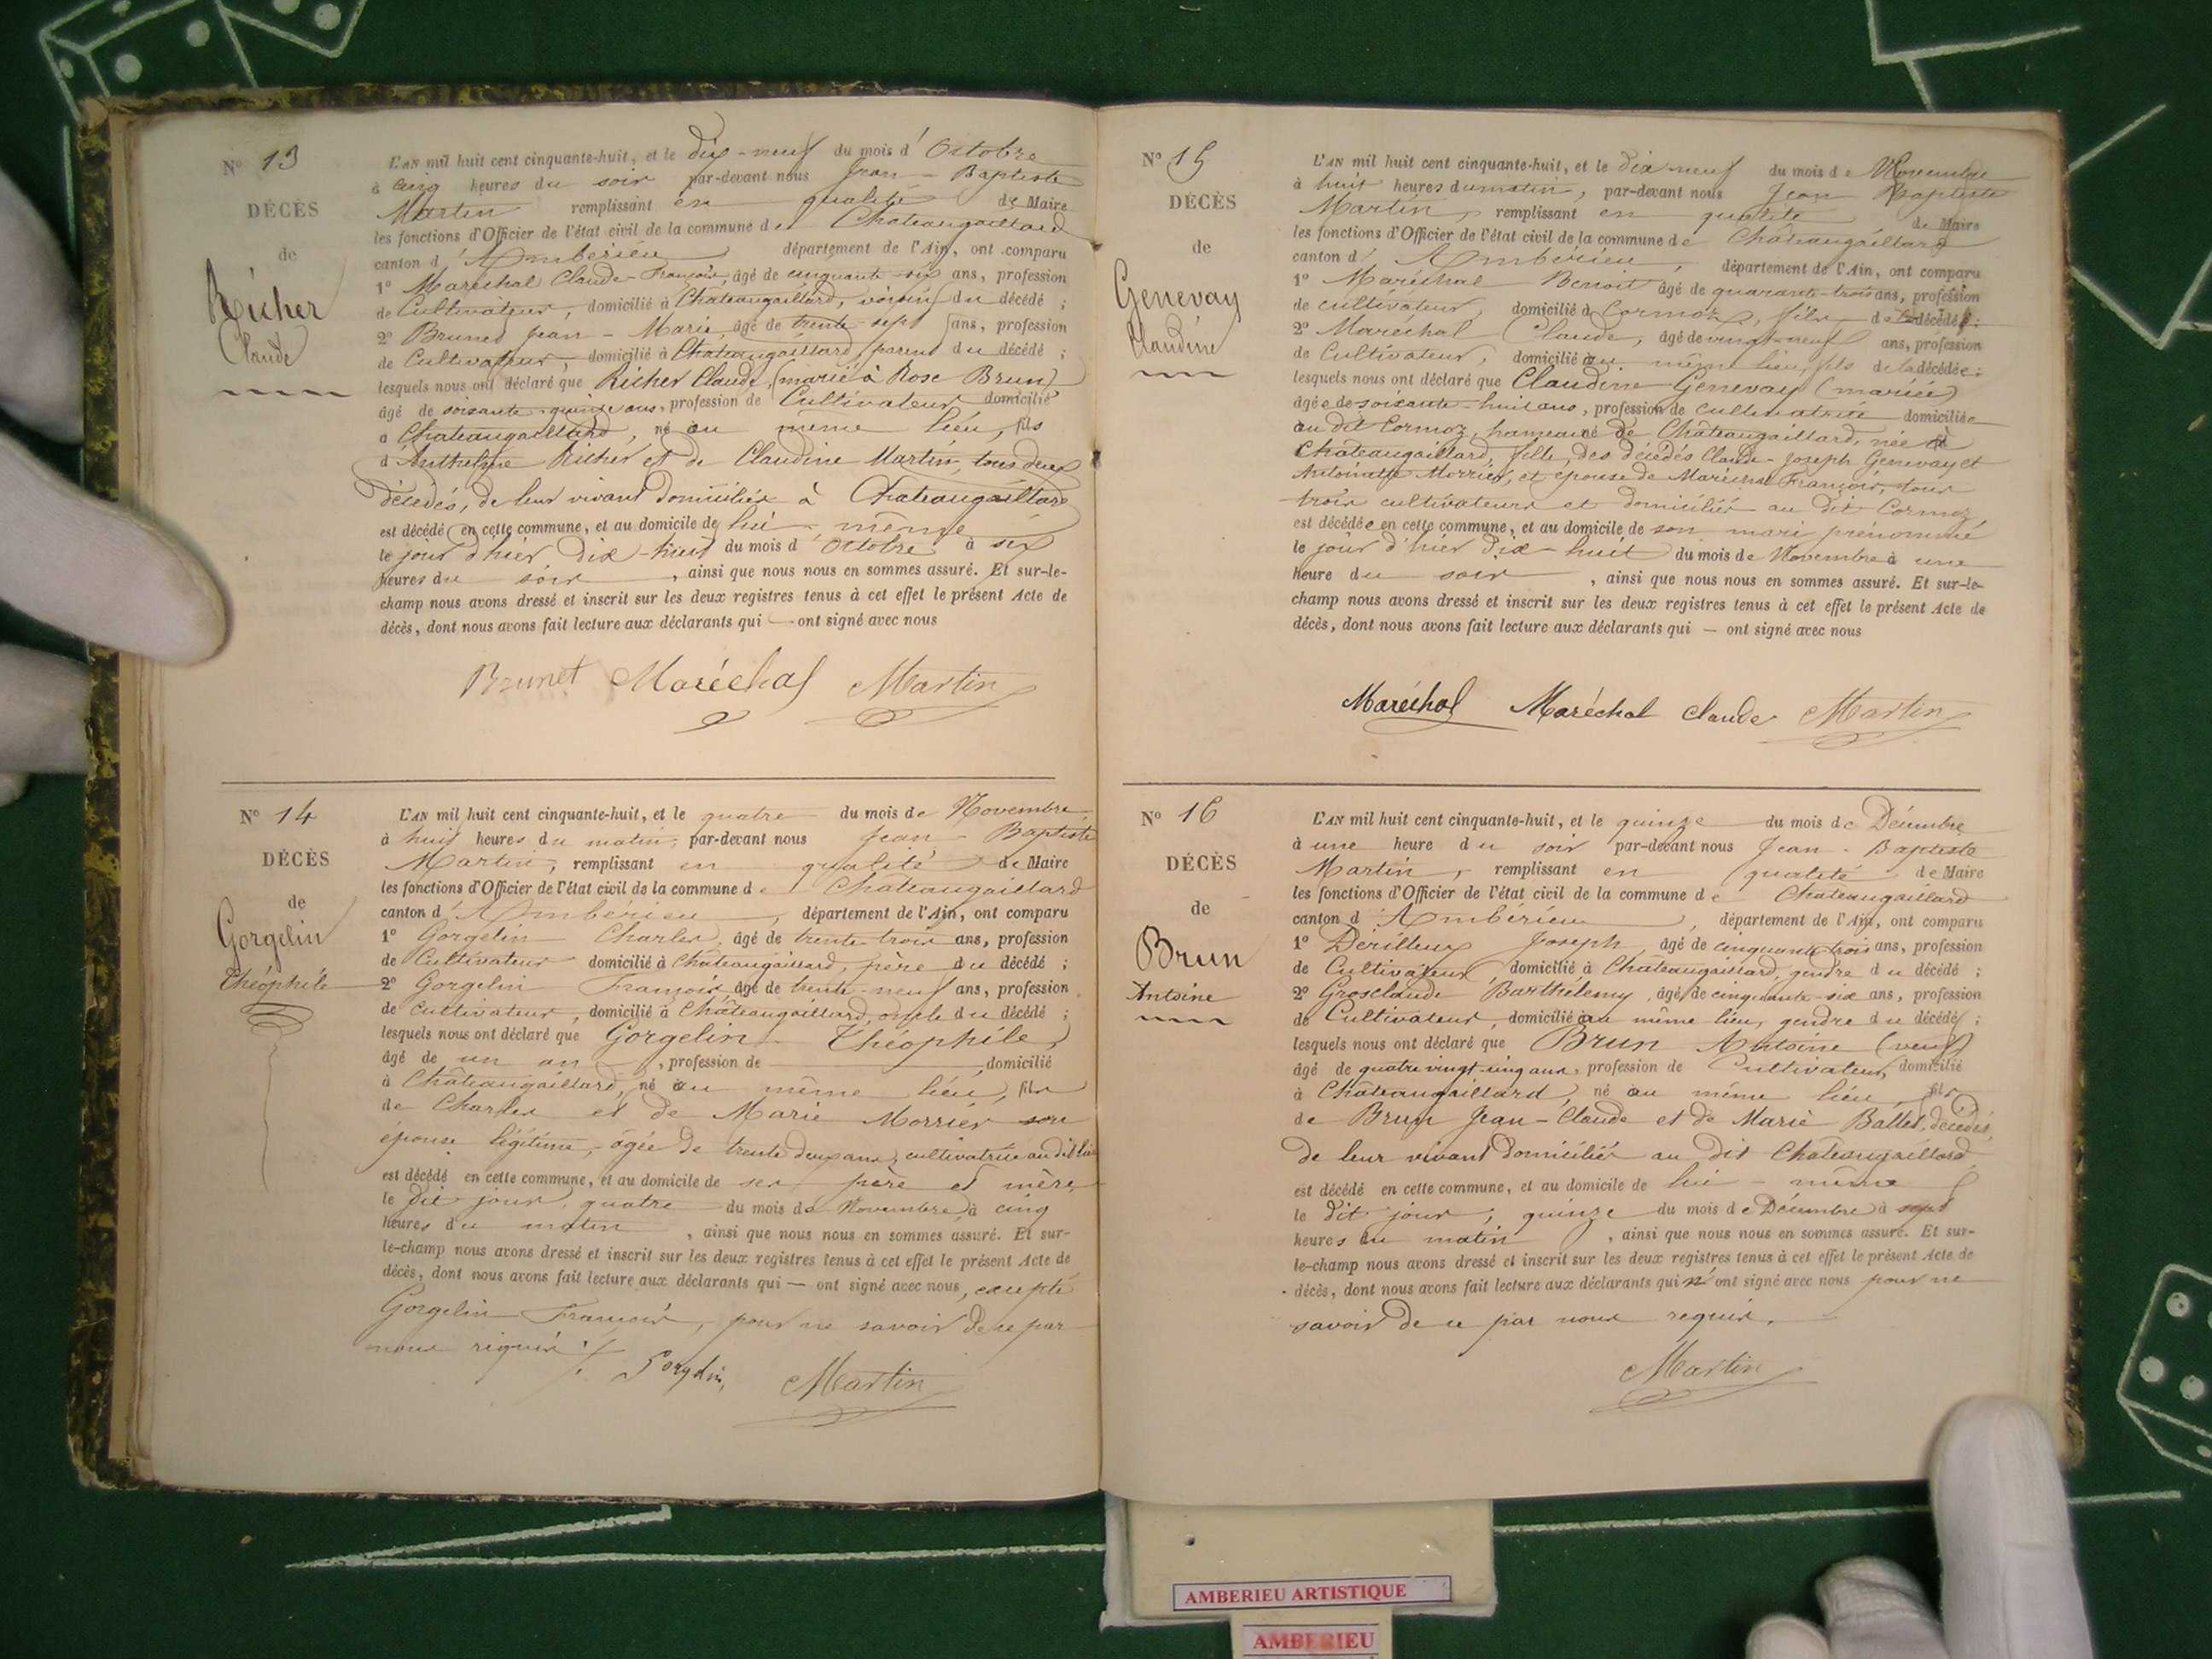 N° 13
DÉCÈS
de
Richer
Claude
L'AN mil huit cent cinquante-huit, et le dix-neuf du mois d'Octobre
à cinq heures du soir par-devant nous Jean-Baptiste
Martin remplissant en qualité de Maire
les fonctions d'Officier de l'état civil de la commune de Chateaugaillard
canton d'Ambérieu, département de l'Ain, ont comparu
1° Maréchal Claude-François, âgé de cinquante-six ans, profession
de Cultivateur, domicilié à Chateaugaillard, voisin du décédé ;
2° Brunet Jean-Marie, âgé de trente-sept ans, profession
de Cultivateur, domicilié à Chateaugaillard, parent du décédé ;
lesquels nous ont déclaré que Richer Claude, (marié à Rose Brun)
âgé de soixante-quinze ans, profession de Cultivateur domicilié
à Chateaugaillard, né au même lieu, fils
d'Anthelme Richer et de Claudine Martin, tous deux
décédés, de leur vivant domiciliés à Chateaugaillard
est décédé en cette commune, et au domicile de lui-même
le jour d'hier dix-huit du mois d'Octobre à six
heures du soir, ainsi que nous nous en sommes assuré. Et sur-le-
champ nous avons dressé et inscrit sur les deux registres tenus à cet effet le présent Acte de
décès, dont nous avons fait lecture aux déclarants qui — ont signé avec nous
Brunet Maréchal Martin
N° 14
DÉCÈS
de
Gorgelin
Théophile
L'AN mil huit cent cinquante-huit, et le quatre du mois de Novembre
à huit heures du matin, par-devant nous Jean-Baptiste
Martin, remplissant en qualité de Maire
les fonctions d'Officier de l'état civil de la commune de Châteaugaillard
canton d'Ambérieu, département de l'Ain, ont comparu
1° Gorgelin Charles, âgé de trente-trois ans, profession
de Cultivateur domicilié à Châteaugaillard, père du décédé ;
2° Gorgelin François, âgé de trente-neuf ans, profession
de cultivateur, domicilié à Châteaugaillard, oncle du décédé ;
lesquels nous ont déclaré que Gorgelin Théophile,
âgé de un an, profession de — domicilié
à Châteaugaillard, né au même lieu, fils
de Charles et de Marie Morrier son
épouse légitime, âgée de trente deux ans, cultivatrice au dit lieu
est décédé en cette commune, et au domicile de ses père et mère,
le dit jour, quatre du mois de Novembre à cinq
heures du matin, ainsi que nous nous en sommes assuré. Et sur-
le-champ nous avons dressé et inscrit sur les deux registres tenus à cet effet le présent Acte de
décès, dont nous avons fait lecture aux déclarants qui — ont signé avec nous, excepté
Gorgelin François, pour ne savoir de ce par
nous requis.
Gorgelin, Martin
N° 15
DÉCÈS
de
Genevay
Claudine
L'AN mil huit cent cinquante-huit, et le dix-neuf du mois de Novembre
à huit heures du matin, par-devant nous Jean Baptiste
Martin, remplissant en qualité de Maire
les fonctions d'Officier de l'état civil de la commune de Châteaugaillard
canton d'Ambérieu, département de l'Ain, ont comparu
1° Maréchal Benoit âgé de quarante-trois ans, profession
de cultivateur, domicilié à Cormoz, fils de la décédée ;
2° Maréchal Claude, âgé de vingt-neuf ans, profession
de Cultivateur, domicilié au même lieu, fils de la décédée ;
lesquels nous ont déclaré que Claudine Genevay (mariée)
âgée de soixante-huit ans, profession de cultivatrice domiciliée
au dit Cormoz, hameau de Châteaugaillard, née à
Châteaugaillard, fille des décédés Claude-Joseph Genevay et
Antoinette Morrier, et épouse de Maréchal François, tous
trois cultivateurs et domiciliés au dit Cormoz
est décédée en cette commune, et au domicile de son mari prénommé
le jour d'hier dix-huit du mois de Novembre à une
heure du soir, ainsi que nous nous en sommes assuré. Et sur-le-
champ nous avons dressé et inscrit sur les deux registres tenus à cet effet le présent Acte de
décès, dont nous avons fait lecture aux déclarants qui — ont signé avec nous
Maréchal Maréchal Claude Martin
N° 16
DÉCÈS
de
Brun
Antoine
L'AN mil huit cent cinquante-huit, et le quinze du mois de Décembre
à une heure du soir par-devant nous Jean-Baptiste
Martin, remplissant en qualité de Maire
les fonctions d'Officier de l'état civil de la commune de Chateaugaillard
canton d'Ambérieu, département de l'Ain, ont comparu
1° Dérilleux Joseph, âgé de cinquante-trois ans, profession
de Cultivateur, domicilié à Châteaugaillard, gendre du décédé ;
2° Grosclaude Barthélemy, âgé de cinquante-six ans, profession
de Cultivateur, domicilié au même lieu, gendre du décédé ;
lesquels nous ont déclaré que Brun Antoine (veuf)
âgé de quatre vingt-cinq ans, profession de Cultivateur, domicilié
à Châteaugaillard, né au même lieu, fils
de Brun Jean-Claude et de Marie Ballet, décédés,
de leur vivant domiciliés au dit Châteaugaillard
est décédé en cette commune, et au domicile de lui-même
le dit jour, quinze du mois de Décembre à sept
heures du matin, ainsi que nous nous en sommes assuré. Et sur-
le-champ nous avons dressé et inscrit sur les deux registres tenus à cet effet le présent Acte de
décès, dont nous avons fait lecture aux déclarants qui n'ont signé avec nous pour ne
savoir de ce par nous requis.
Martin
AMBERIEU ARTISTIQUE
AMBERIEU